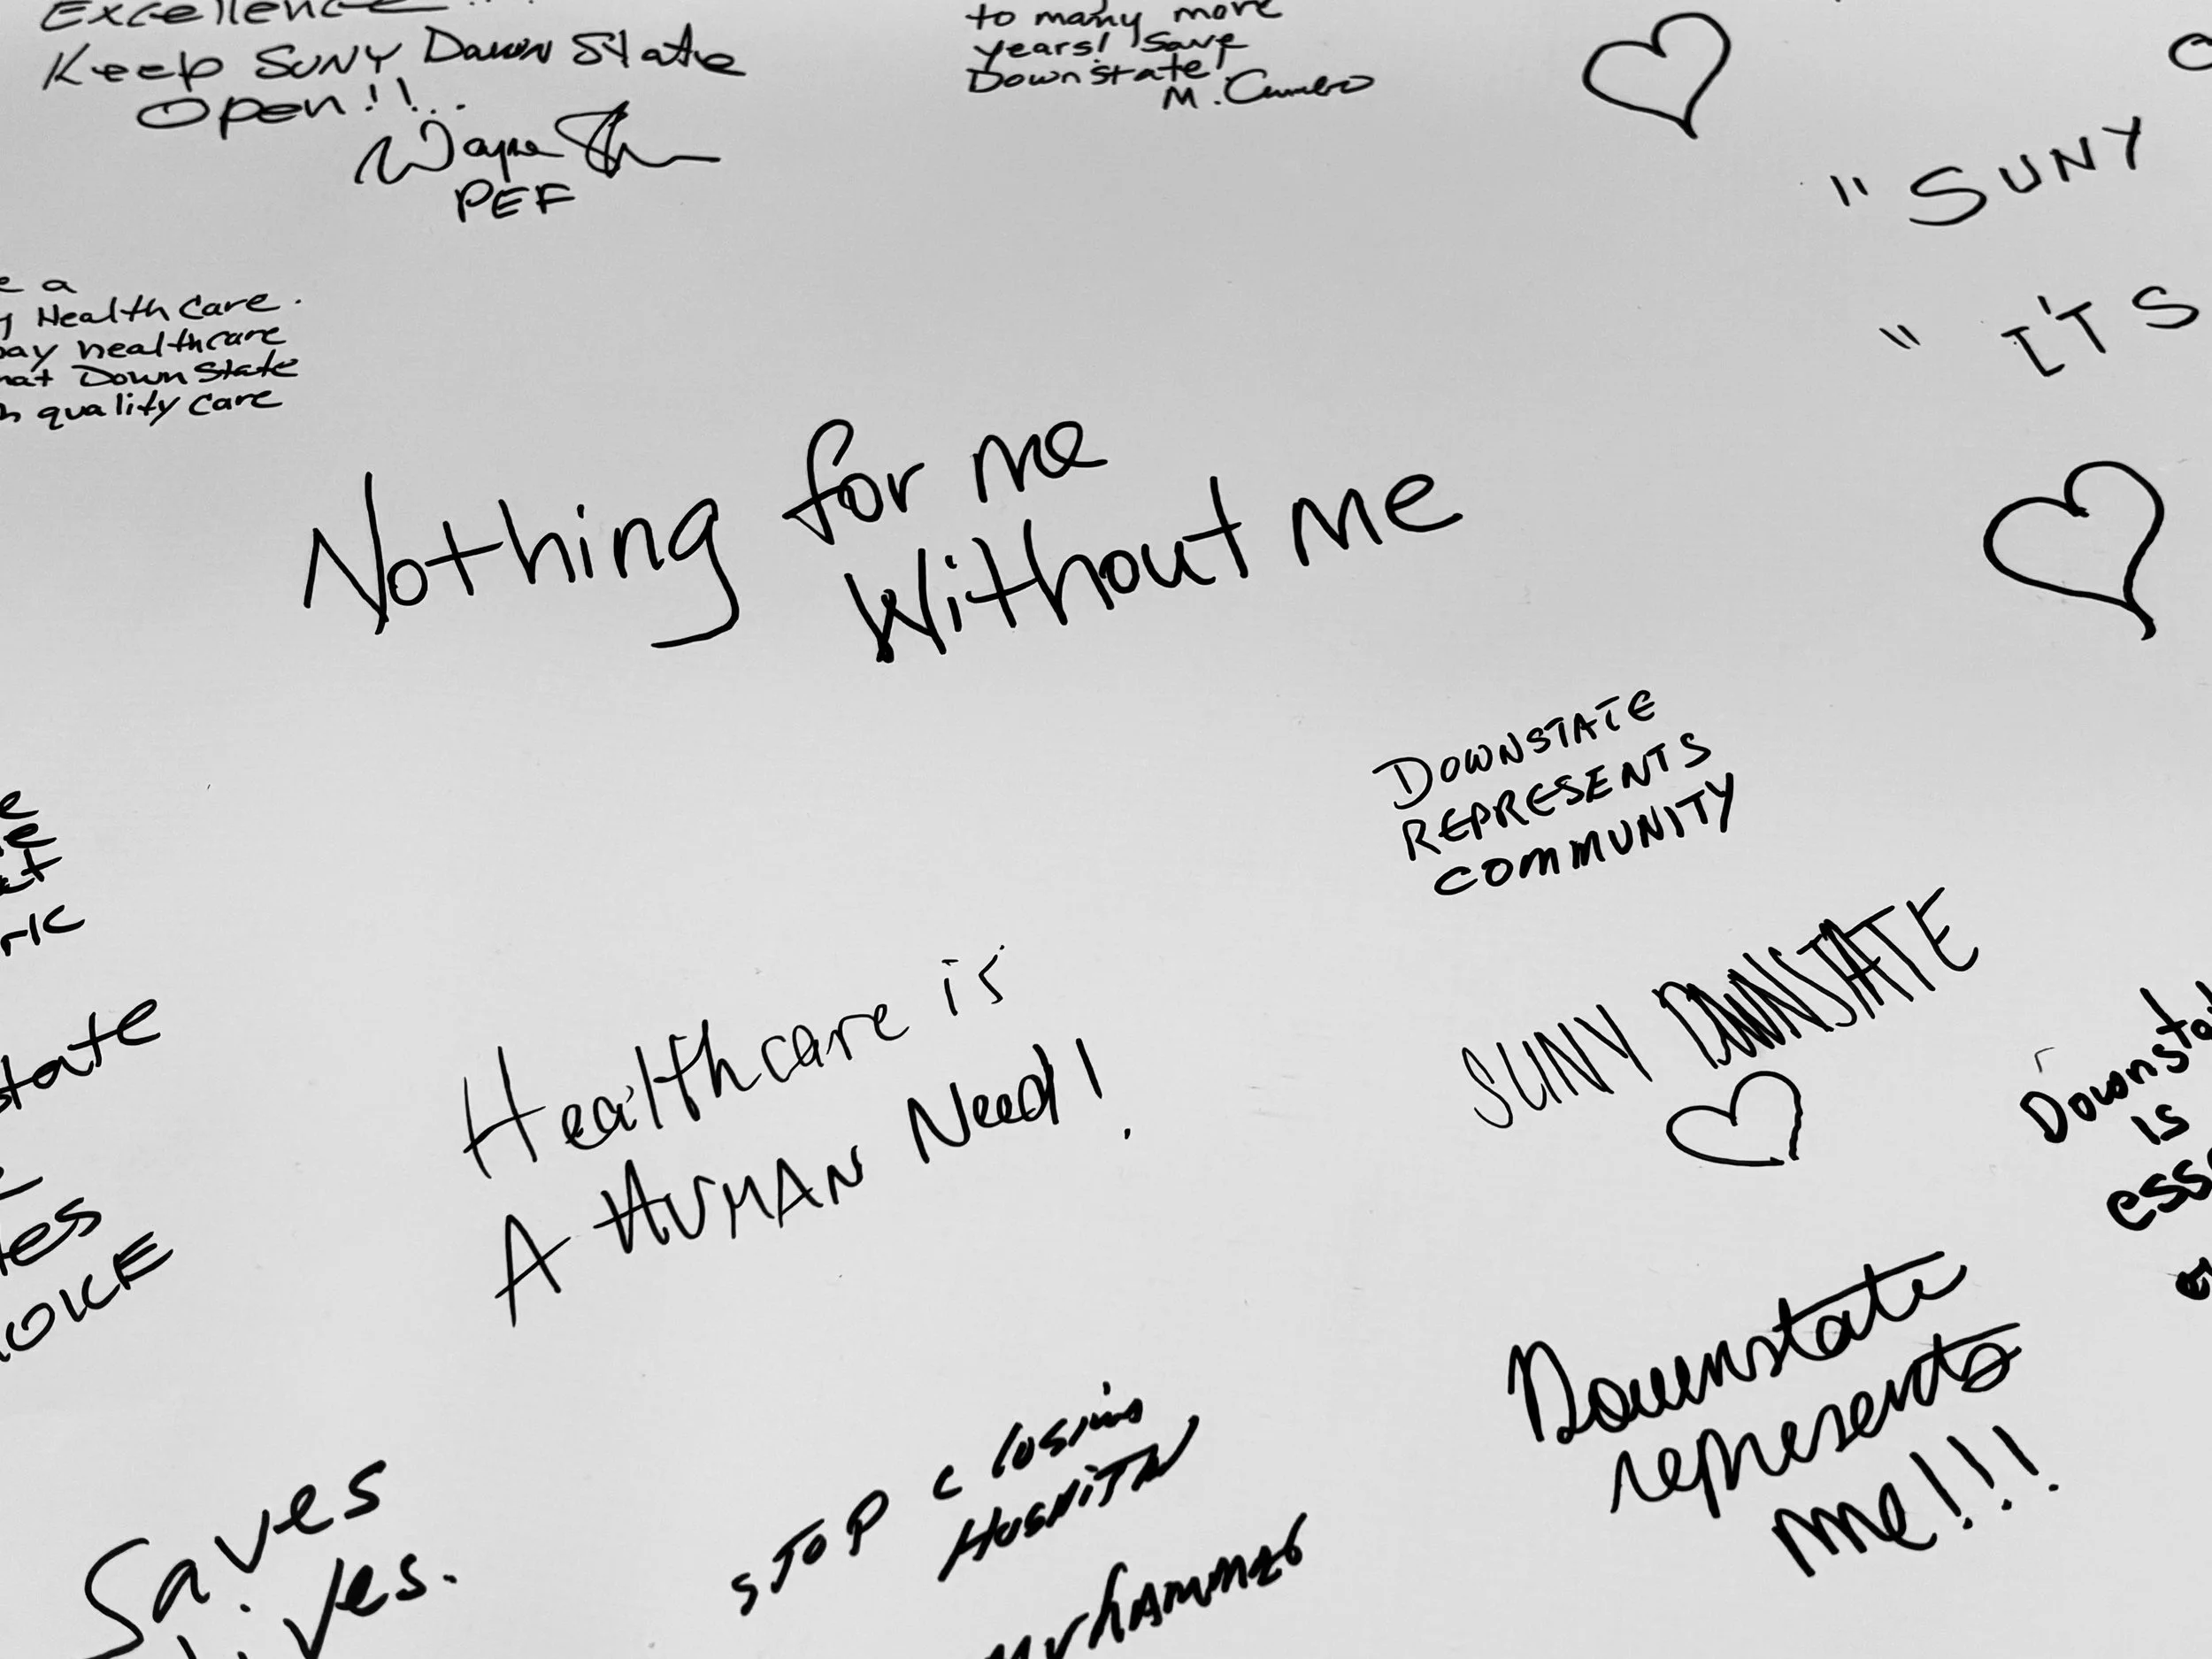 Excellence
Keep SUNY Down State
Open!!..
Wayne
PEF
to many more
years! Save
Downstate!
M.
"SUNY
"IT'S
e a
Health Care.
pay healthcare
hat Down State
quality care
Nothing for me
Without me
DOWNSTATE
REPRESENTS
COMMUNITY
Healthcare is
A HUMAN Need!
SUNY DOWNSTATE
Downsta
is
ess
ric
tate
es
OKE
Downstate
represents
me!!!
STOP closing
Saves
Lives.